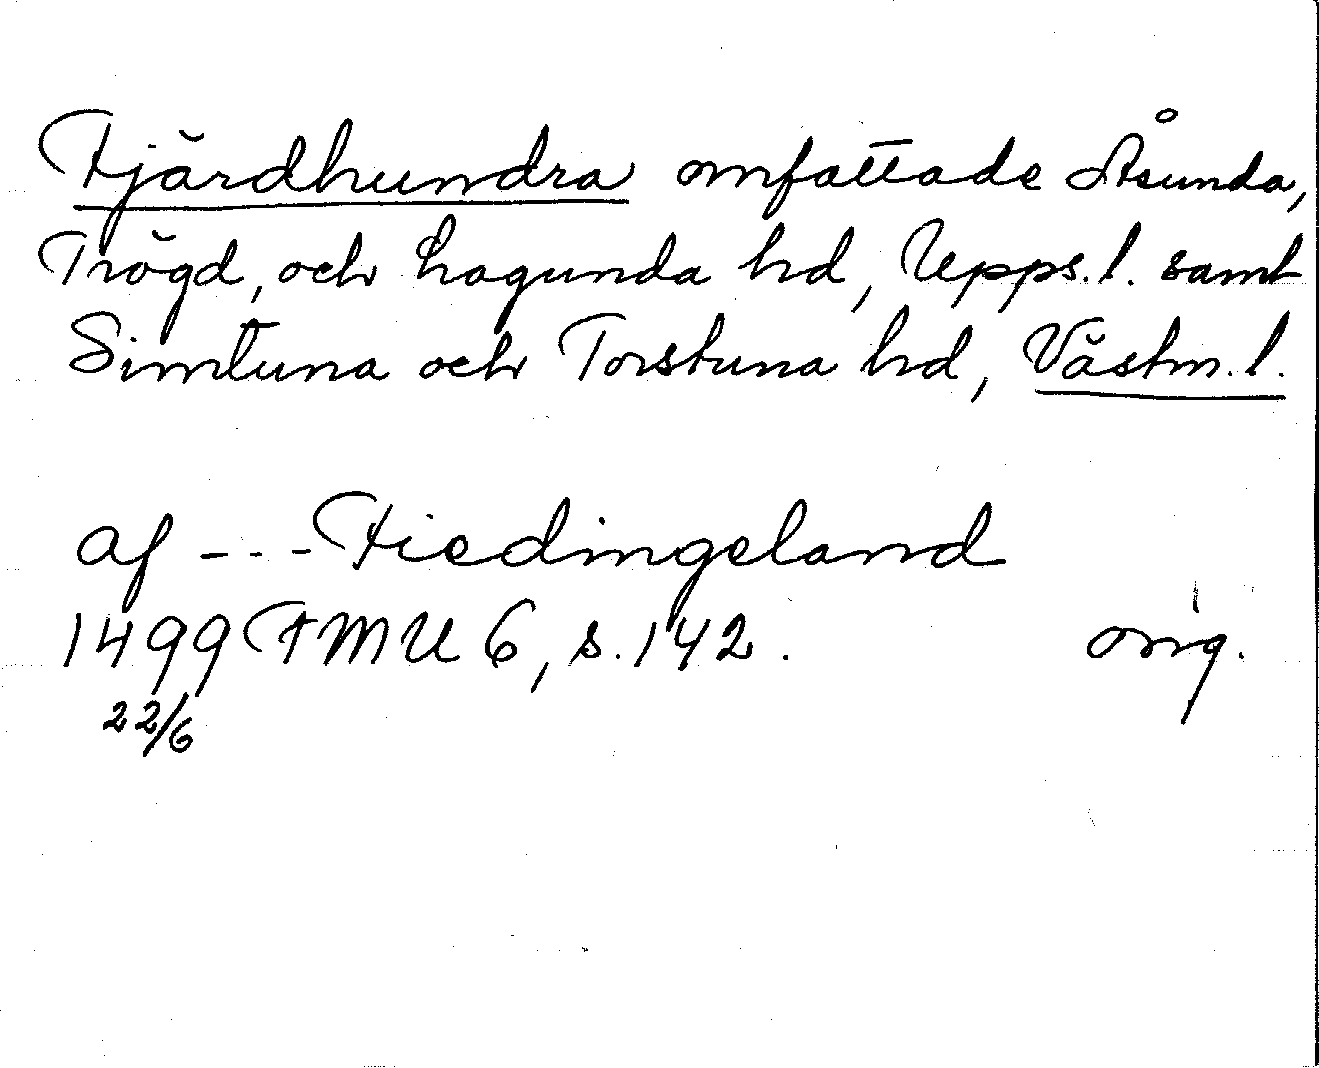 Fjärdhundra omfattade Åsunda,
Trögd, och Lagunda hd, Upps. l. samt
Simtuna och Torstuna hd, Västm. l.
af --- Fiedingeland
1499 FMU 6, s. 142. orig.
22/6